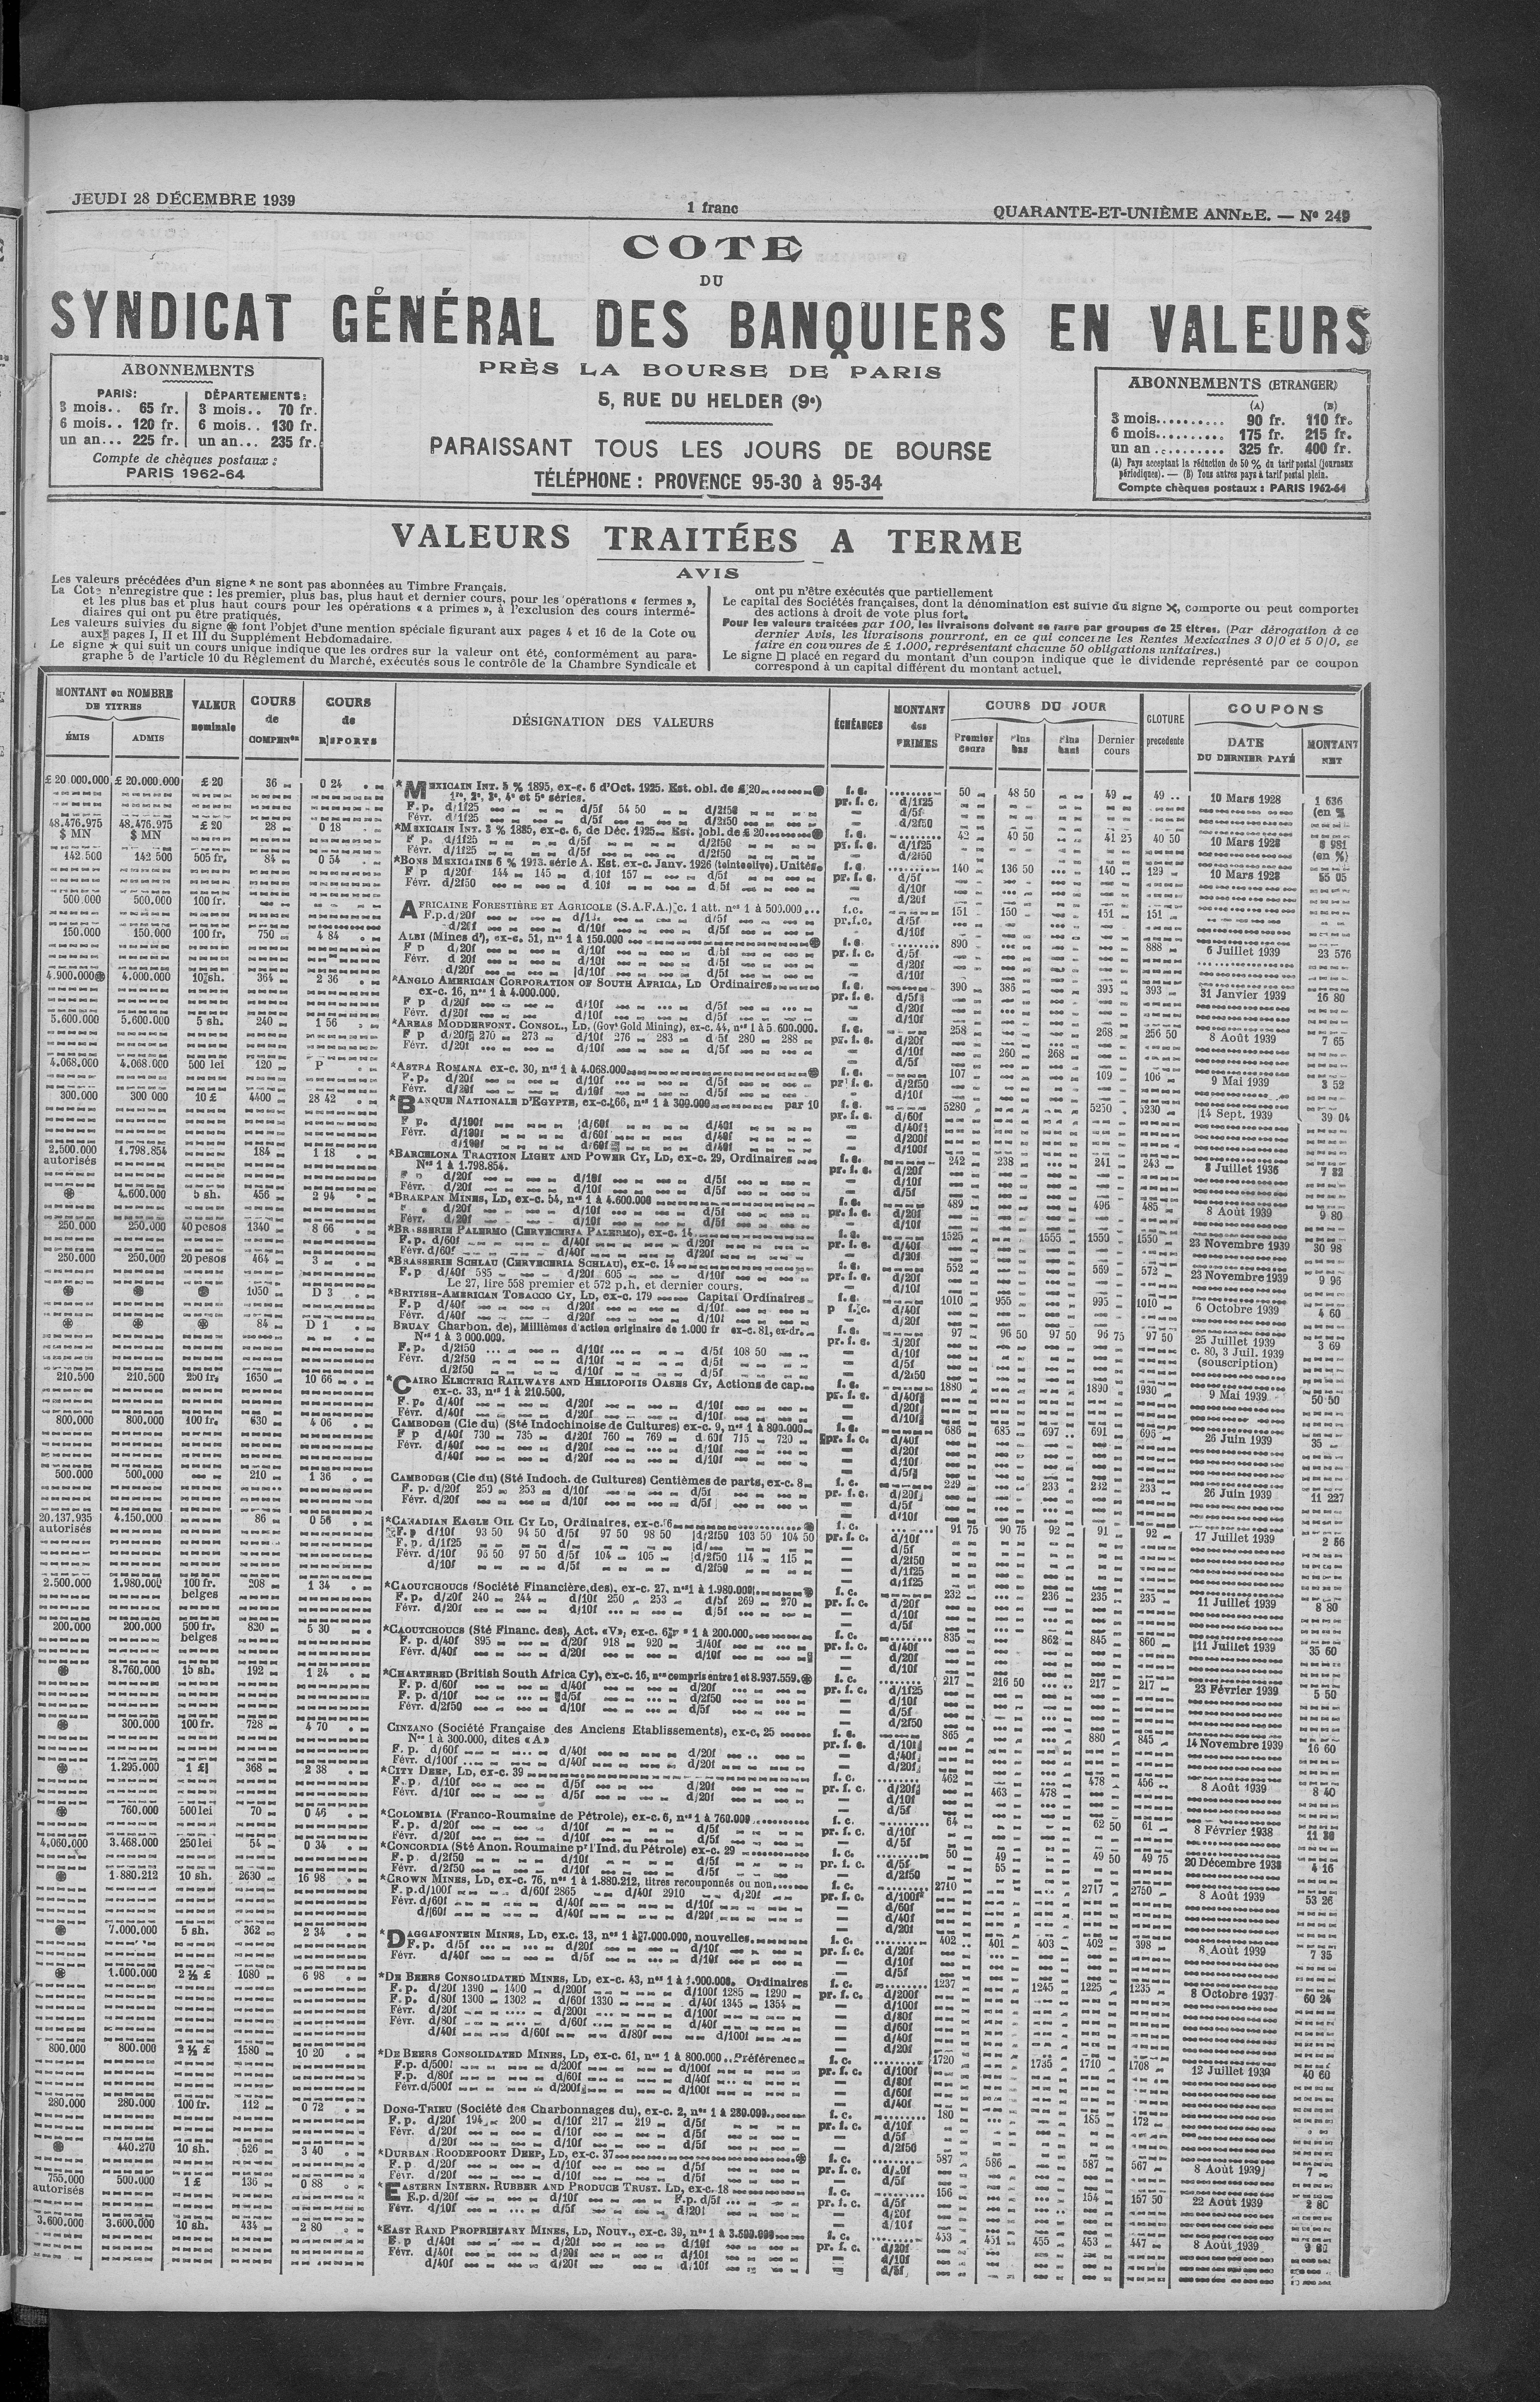 JEUDI 28 DÉCEMBRE 1939
1 franc
QUARANTE-ET-UNIÈME ANNÉE. — Nº 249
COTE
DU
SYNDICAT GÉNÉRAL DES BANQUIERS EN VALEURS
PRÈS LA BOURSE DE PARIS
5, RUE DU HELDER (9e)
PARAISSANT TOUS LES JOURS DE BOURSE
TÉLÉPHONE : PROVENCE 95-30 à 95-34
ABONNEMENTS
PARIS: DÉPARTEMENTS:
3 mois.. 65 fr. 3 mois.. 70 fr.
6 mois.. 120 fr. 6 mois.. 130 fr.
un an... 225 fr. un an... 235 fr.
Compte de chèques postaux :
PARIS 1962-64
ABONNEMENTS (ETRANGER)
(A) (B)
3 mois.......... 90 fr. 110 fr.
6 mois.......... 175 fr. 215 fr.
un an .......... 325 fr. 400 fr.
(A) Pays acceptant la réduction de 50 % du tarif postal (journaux
périodiques). — (B) Tous autres pays à tarif postal plein.
Compte chèques postaux : PARIS 1962-64
VALEURS TRAITÉES A TERME
AVIS
Les valeurs précédées d'un signe * ne sont pas abonnées au Timbre Français.
La Cote n'enregistre que : les premier, plus bas, plus haut et dernier cours, pour les opérations « fermes »,
et les plus bas et plus haut cours pour les opérations « à primes », à l'exclusion des cours intermé-
diaires qui ont pu être pratiqués.
Les valeurs suivies du signe ⊛ font l'objet d'une mention spéciale figurant aux pages 4 et 16 de la Cote ou
aux pages I, II et III du Supplément Hebdomadaire.
Le signe ★ qui suit un cours unique indique que les ordres sur la valeur ont été, conformément au para-
graphe 5 de l'article 10 du Règlement du Marché, exécutés sous le contrôle de la Chambre Syndicale et
ont pu n'être exécutés que partiellement
Le capital des Sociétés françaises, dont la dénomination est suivie du signe ✕, comporte ou peut comporter
des actions à droit de vote plus fort.
Pour les valeurs traitées par 100, les livraisons doivent se faire par groupes de 25 titres. (Par dérogation à ce
dernier Avis, les livraisons pourront, en ce qui concerne les Rentes Mexicaines 3 0/0 et 5 0/0, se
faire en coupures de £ 1.000, représentant chacune 50 obligations unitaires.)
Le signe □ placé en regard du montant d'un coupon indique que le dividende représenté par ce coupon
correspond à un capital différent du montant actuel.
MONTANT ou NOMBRE DE TITRES
ÉMIS ADMIS
VALEUR nominale
COURS de COMPENon
COURS de REPORTS
DÉSIGNATION DES VALEURS
ÉCHÉANCES
MONTANT des PRIMES
COURS DU JOUR
Premier cours Plus bas Plus haut Dernier cours
CLOTURE precedente
COUPONS
DATE DU DERNIER PAYÉ MONTANT NET
£ 20.000.000 £ 20.000.000 £ 20 36 0 24 *MEXICAIN INT. 5 % 1895, ex-c. 6 d'Oct. 1925. Est. obl. de £ 20 ⊛ f. c. 50 48 50 49 49 10 Mars 1928 1 636
1re, 2e, 3e, 4e et 5e séries. pr. f. c. d/1f25 (en %
F. p. d/1f25 d/5f 54 50 d/2f50 d/5f
Févr. d/1f25 d/5f d/2f50 d/2f50
48.476.975 48.476.975 £ 20 28 0 18 *MEXICAIN INT. 3 % 1885, ex-c. 6, de Déc. 1925. Est. obl. de £ 20 ⊛ f. c. 42 40 50 41 25 40 50 10 Mars 1928 981
$ MN $ MN F p. d/1f25 d/5f d/2f50 pr. f. c. d/1f25 (en %)
Févr. d/1f25 d/5f d/2f50 d/2f50
142.500 142 500 505 fr. 84 0 54 *BONS MEXICAINS 6 % 1913. série A. Est. ex-c. Janv. 1926 (teinte olive). Unités f. c. 140 136 50 140 129 10 Mars 1928 55 05
F p d/20f 144 145 d 10f 157 d/5f pr. f. c. d/5f
Févr. d/2f50 d 10f d 5f d/10f
d/20f
500.000 500.000 100 fr. AFRICAINE FORESTIÈRE ET AGRICOLE (S.A.F.A.) c. 1 att. nos 1 à 500.000... f. c. 151 150 151 151
F. p. d/20f d/10f d/5f pr. f. c. d/5f
d/20f d/10f d/5f d/10f
150.000 150.000 100 fr. 750 4 84 ALBI (Mines d'), ex-c. 51, nos 1 à 150.000 ⊛ f. c. 890 888 6 Juillet 1939 23 576
F p d/20f d/10f d/5f pr. f. c. d/5f
Févr. d 20f d/10f d/5f d/20f
d/20f d/10f d/5f d/10f
4.900.000⊛ 4.000.000 10 sh. 364 2 36 *ANGLO AMERICAN CORPORATION OF SOUTH AFRICA, LD Ordinaires f. c. 390 386 393 393 31 Janvier 1939 16 80
ex-c. 16, nos 1 à 4.000.000. pr. f. c. d/5f
F p d/20f d/10f d/5f d/20f
Févr. d/20f d/10f d/5f d/10f
5.600.000 5.600.000 5 sh. 240 1 56 *AREAS MODDERFONT. CONSOL, LD, (Govt Gold Mining), ex-c. 44, nos 1 à 5 600.000. f. c. 258 268 256 50 8 Août 1939 7 65
F p d/20f 270 273 d/10f 276 283 d 5f 280 288 pr. f. c. d/20f
Févr. d/20f d/10f d/5f d/10f 260 268
d/5f
4.068.000 4.068.000 500 lei 120 P *ASTRA ROMANA ex-c. 30, nos 1 à 4.068.000 ⊛ f. c. 107 109 106 9 Mai 1939 3 52
F. p. d/20f d/10f d/5f pr. f. c. d/2f50
Févr. d/20f d/10f d/5f d/10f
300.000 300 000 10 £ 4400 28 42 *BANQUE NATIONALE D'EGYPTE, ex-c. 66, nos 1 à 300.000 par 10 f. c. 5280 5250 5230 14 Sept. 1939 39 04
pr. f. c. d/60f
F p. d/100f d/60f d/40f d/40f
Févr. d/100f d/60f d/40f d/200f
d/100f d/60f d/40f d/100f
2.500.000 1.798.854 184 1 18 *BARCELONA TRACTION LIGHT AND POWER CY, LD, ex-c. 29, Ordinaires f. c. 242 238 241 243 8 Juillet 1936 7 82
autorisés Nos 1 à 1.798.854. pr. f. c. d/20f
F p d/20f d/10f d/5f d/10f
Févr. d/20f d/10f d/5f d/5f
⊛ 4.600.000 5 sh. 456 2 94 *BRAKPAN MINES, LD, ex-c. 54, nos 1 à 4.600.000 f. c. 489 496 485 8 Août 1939 9 80
d/20f d/10f d/5f pr. f. c. d/20f
Févr. d/20f d/10f d/5f d/10f
250.000 250.000 40 pesos 1340 8 66 *BRASSERIE PALERMO (CERVECERIA PALERMO), ex-c. 14 f. c. 1525 1555 1550 1550 23 Novembre 1939 30 98
F. p. d/60f d/40f d/20f pr. f. c. d/40f
Févr. d/60f d/40f d/20f d/20f
250.000 250.000 20 pesos 464 3 *BRASSERIE SCHLAU (CERVECERIA SCHLAU), ex-c. 14 f. c. 552 569 572 23 Novembre 1939 9 96
F. p d/40f 585 d/20f 605 d/10f pr. f. c. d/20f
Le 27, lire 558 premier et 572 p.h. et dernier cours. d/10f
⊛ ⊛ ⊛ 1050 D 3 *BRITISH-AMERICAN TOBACCO CY, LD, ex-c. 179 Capital Ordinaires f. c. 1010 955 995 1010 6 Octobre 1939 4 60
F. p d/40f d/20f d/10f p f. c. d/40f
Févr. d/40f d/20f d/10f d/20f
⊛ ⊛ ⊛ 84 D 1 BRUAY Charbon. de), Millièmes d'action originaire de 1.000 fr ex-c. 81, ex-dr. f. c. 97 96 50 97 50 96 75 97 50 25 Juillet 1939 3 69
Nos 1 à 3 000.000. pr. f. c. d/20f c. 80, 3 Juil. 1939
F. p. d/2f50 d/10f d/5f 108 50 d/10f (souscription)
Févr. d/2f50 d/10f d/5f d/5f
d/2f50 d/10f d/5f d/2f50
210.500 210.500 250 fr. 1650 10 66 *CAIRO ELECTRIC RAILWAYS AND HELIOPOLIS OASES CY, Actions de cap. f. c. 1880 1890 1930 9 Mai 1939 50 50
ex-c. 33, nos 1 à 210.500. pr. f. c. d/40f
F. p. d/40f d/20f d/10f d/20f
Févr. d/40f d/20f d/10f d/10f
800.000 800.000 100 fr. 630 4 06 CAMBODGE (Cie du) (Sté Indochinoise de Cultures) ex-c. 9, nos 1 à 800.000 f. c. 686 685 697 691 695 26 Juin 1939 35
F p d/40f 730 735 d/20f 760 769 d 60f 715 720 pr. f. c. d/40f
Févr. d/40f d/20f d/10f d/20f
d/40f d/20f d/10f d/10f
d/5f
500.000 500.000 210 1 36 CAMBODGE (Cie du) (Sté Indoch. de Cultures) Centièmes de parts, ex-c. 8 f. c. 229 233 232 233 26 Juin 1939 11 227
F. p. d/20f 250 253 d/10f d/5f pr. f. c. d/20f
Févr. d/20f d/10f d/5f d/5f
d/10f
20.137.935 4.150.000 86 0 56 *CANADIAN EAGLE OIL CY LD, Ordinaires, ex-c. 6 ⊛ f. c. 91 75 90 75 92 91 92 17 Juillet 1939 2 56
autorisés F. p d/10f 93 50 94 50 d/5f 97 50 98 50 d/2f50 103 50 104 50 pr. f. c. d/10f
F. p. d/1f25 d/ d/ d/5f
Févr. d/10f 95 50 97 50 d/5f 104 105 d/2f50 114 115 d/2f50
d/10f d/5f d/2f50 d/1f25
d/1f25
2.500.000 1.980.000 100 fr. belges 208 1 34 *CAOUTCHOUCS (Société Financière des), ex-c. 27, nos 1 à 1.980.000 ⊛ f. c. 232 236 235 235 11 Juillet 1939 8 80
F. p. d/20f 240 244 d/10f 250 253 d/5f 269 270 pr. f. c. d/20f
Févr. d/20f d/10f d/5f d/10f
d/5f
200.000 200.000 500 fr. belges 820 5 30 *CAOUTCHOUCS (Sté Financ. des), Act. «V», ex-c. 6 1 à 200.000 f. c. 835 862 845 860 11 Juillet 1939 35 60
F. p. d/40f 895 d/20f 918 920 d/40f pr. f. c. d/40f
d/40f d/20f d/10f d/20f
d/10f
⊛ 8.760.000 15 sh. 192 1 24 *CHARTERED (British South Africa Cy), ex-c. 16, nos compris entre 1 et 8.937.559. ⊛ f. c. 217 216 50 217 217 23 Février 1939 5 50
F. p. d/60f d/40f d/20f pr. f. c. d/1f25
F. p. d/10f d/5f d/2f50 d/10f
Févr. d/2f50 d/10f d/5f d/5f
d/2f50
⊛ 300.000 100 fr. 728 4 70 CINZANO (Société Française des Anciens Etablissements), ex-c, 25 f. c. 865 880 845 14 Novembre 1939 16 60
Nos 1 à 300.000, dites «A» pr. f. c. d/10f
F. p. d/60f d/40f d/20f d/40f
Févr. d/100f d/40f d/20f d/20f
⊛ 1.295.000 1 £ 368 2 38 *CITY DEEP, LD, ex-c. 39 f. c. 462 478 456 8 Août 1939 8 40
F. p. d/10f d/5f d/20f pr. f. c. d/20f 463 478
Févr. d/10f d/5f d/20f d/10f
d/5f
⊛ 760.000 500 lei 70 0 46 *COLOMBIA (Franco-Roumaine de Pétrole), ex-c. 6, nos 1 à 760.000 f. c. 64 62 50 61 8 Février 1938 11 30
F. p. d/20f d/10f d/5f pr. f. c. d/10f
Févr. d/20f d/10f d/5f d/5f
4,060.000 3.468.000 250 lei 54 0 34 *CONCORDIA (Sté Anon. Roumaine pr l'Ind. du Pétrole) ex-c. 29 f. c. 50 49 49 50 49 75 20 Décembre 1938 4 16
F. p d/2f50 d/10f d/5f pr. f. c. d/5f
Févr. d/2f50 d/10f d/5f d/2f50 55
⊛ 1.880.212 10 sh. 2630 16 98 *CROWN MINES, LD, ex-c. 76, nos 1 à 1.880.212, titres recouponnés ou non f. c. 2710 2717 2750 8 Août 1939 53 26
F. p. d/100f d/60f 2865 d/40f 2910 d/20f pr. f. c. d/100f
Févr. d/60f d/40f d/10f d/60f
d/60f d/40f d/20f d/40f
d/20f
⊛ 7.000.000 5 sh. 362 2 34 *DAGGAFONTEIN MINES, LD, ex.c. 13, nos 1 à 7.000.000, nouvelles f. c. 402 401 403 402 398 8 Août 1939 7 35
F. p. d/5f d/20f d/10f pr. f. c. d/20f
Févr. d/40f d/5f d/10f d/10f
d/5f
⊛ 1.000.000 2 ½ £ 1080 6 98 *DE BEERS CONSOLIDATED MINES, LD, ex-c. 43, nos 1 à 1.000.000. Ordinaires f. c. 1237 1245 1225 1235 8 Octobre 1937 60 24
F. p. d/20f 1390 1400 d/200f d/100f 1285 1290 pr. f. c. d/200f
F. p. d/80f 1300 1302 d/60f 1330 d/40f 1345 1354 d/100f
Févr. d/20f d/200f d/100f d/80f
Févr. d/80f d/60f d/40f d/60f
d/40f d/60f d/80f d/100f d/40f
d/20f
800.000 800.000 2 ½ £ 1580 10 20 *DE BEERS CONSOLIDATED MINES, LD, ex-c. 61, nos 1 à 800.000 .. Préférence f. c. 1720 1735 1710 1708 12 Juillet 1939 40 60
F. p. d/500f d/200f d/100f pr. f. c. d/100f
F.p. d/80f d/60f d/40f d/80f
Févr. d/500f d/200f d/100f d/60f
d/40f
280.000 280.000 100 fr. 112 0 72 DONG-TRIEU (Société des Charbonnages du), ex-c. 2, nos 1 à 280.000 f. c. 180 185 172
F. p. d/20f 194 200 d/10f 217 219 d/5f pr. f. c. d/10f
Févr. d/20f d/10f d/5f d/5f
d/20f d/10f d/5f d/2f50
⊛ 440.270 10 sh. 526 3 40 *DURBAN ROODEPOORT DEEP, LD, ex-c. 37 ⊛ f. c. 587 586 587 567 8 Août 1939 7
F. p d/20f d/10f d/5f pr. f. c. d/20f
Févr. d/20f d/10f d/5f d/5f
755.000 500.000 1 £ 136 0 88 *EASTERN INTERN. RUBBER AND PRODUCE TRUST. LD, ex-c. 18 f. c. 156 154 157 50 22 Août 1939 2 80
autorisés F.p. d/20f d/10f F.p. d/5f pr. f. c. d/5f
Févr. d/10f d/5f d/20f d/20f
d/10f
3.600.000 3.600.000 10 sh. 434 2 80 *EAST RAND PROPRIETARY MINES, LD, Nouv., ex-c. 39, nos 1 à 3.600.000 f. c. 453 451 455 453 447 8 Août 1939 9 80
F. p d/40f d/20f d/10f pr. f. c. d/20f
Févr. d/40f d/20f d/10f d/10f
d/40f d/20f d/10f d/5f